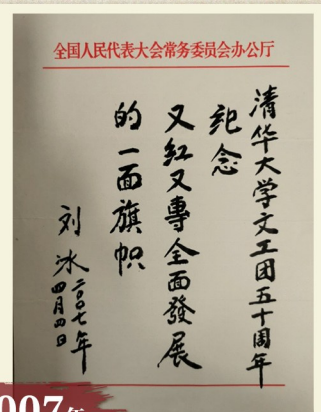 全国人民代表大会常务委员会办公厅
清华大学文工团五十周年
纪念
又红又專全面發展
的一面旗帜
刘冰二〇〇七年
四月四日
007年